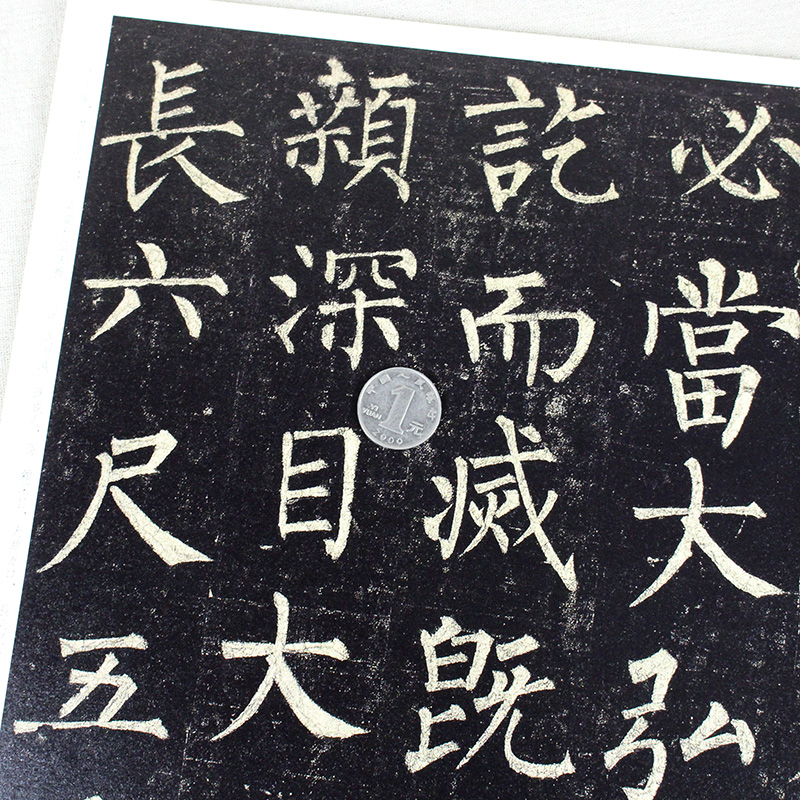 必當大弘
訖而滅既
顙深目大
長六尺五
中国人民银行
YI YUAN
1元
2000